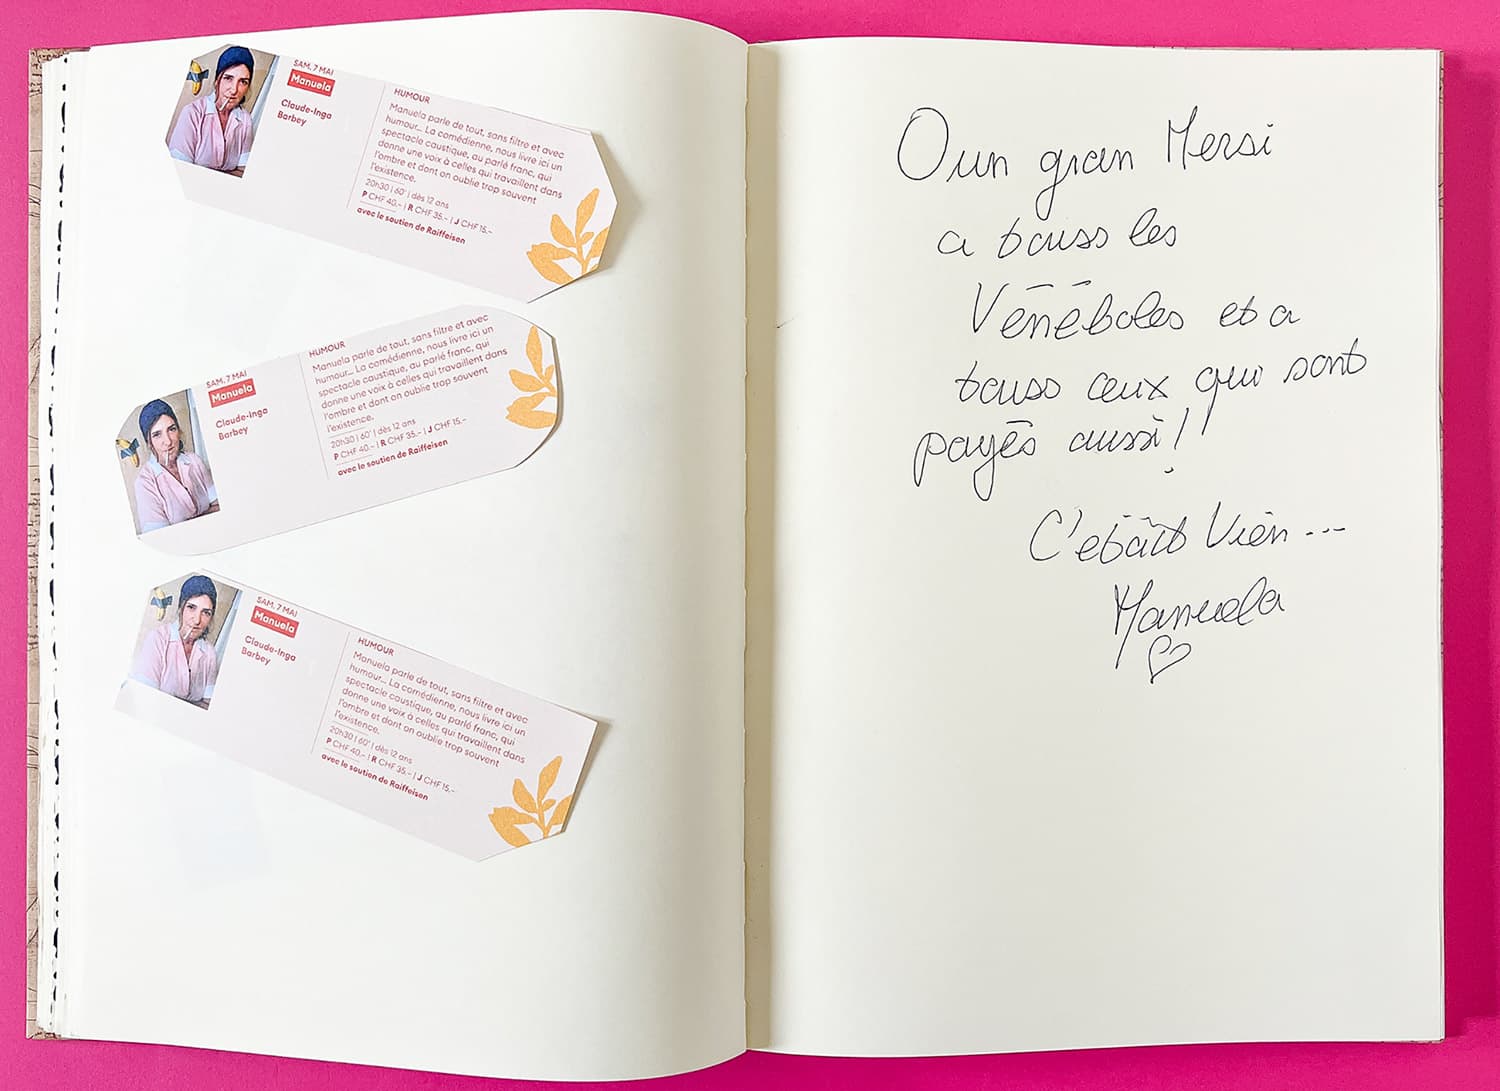 SAM. 7 MAI
Manuela
Claude-Inga
Barbey
HUMOUR
Manuela parle de tout, sans filtre et avec
humour... La comédienne, nous livre ici un
spectacle caustique, au parlé franc, qui
donne une voix à celles qui travaillent dans
l'ombre et dont on oublie trop souvent
l'existence.
20h30 | 60' | dès 12 ans
P CHF 40.- | R CHF 35.- | J CHF 15.-
avec le soutien de Raiffeisen
SAM. 7 MAI
Manuela
Claude-Inga
Barbey
HUMOUR
Manuela parle de tout, sans filtre et avec
humour... La comédienne, nous livre ici un
spectacle caustique, au parlé franc, qui
donne une voix à celles qui travaillent dans
l'ombre et dont on oublie trop souvent
l'existence.
20h30 | 60' | dès 12 ans
P CHF 40.- | R CHF 35.- | J CHF 15.-
avec le soutien de Raiffeisen
SAM. 7 MAI
Manuela
Claude-Inga
Barbey
HUMOUR
Manuela parle de tout, sans filtre et avec
humour... La comédienne, nous livre ici un
spectacle caustique, au parlé franc, qui
donne une voix à celles qui travaillent dans
l'ombre et dont on oublie trop souvent
l'existence.
20h30 | 60' | dès 12 ans
P CHF 40.- | R CHF 35.- | J CHF 15.-
avec le soutien de Raiffeisen
Oun gran Mersi
a touss les
Vénéboles et a
touss ceux qui sont
payés aussi!!
C'etait Vién...
Manuela